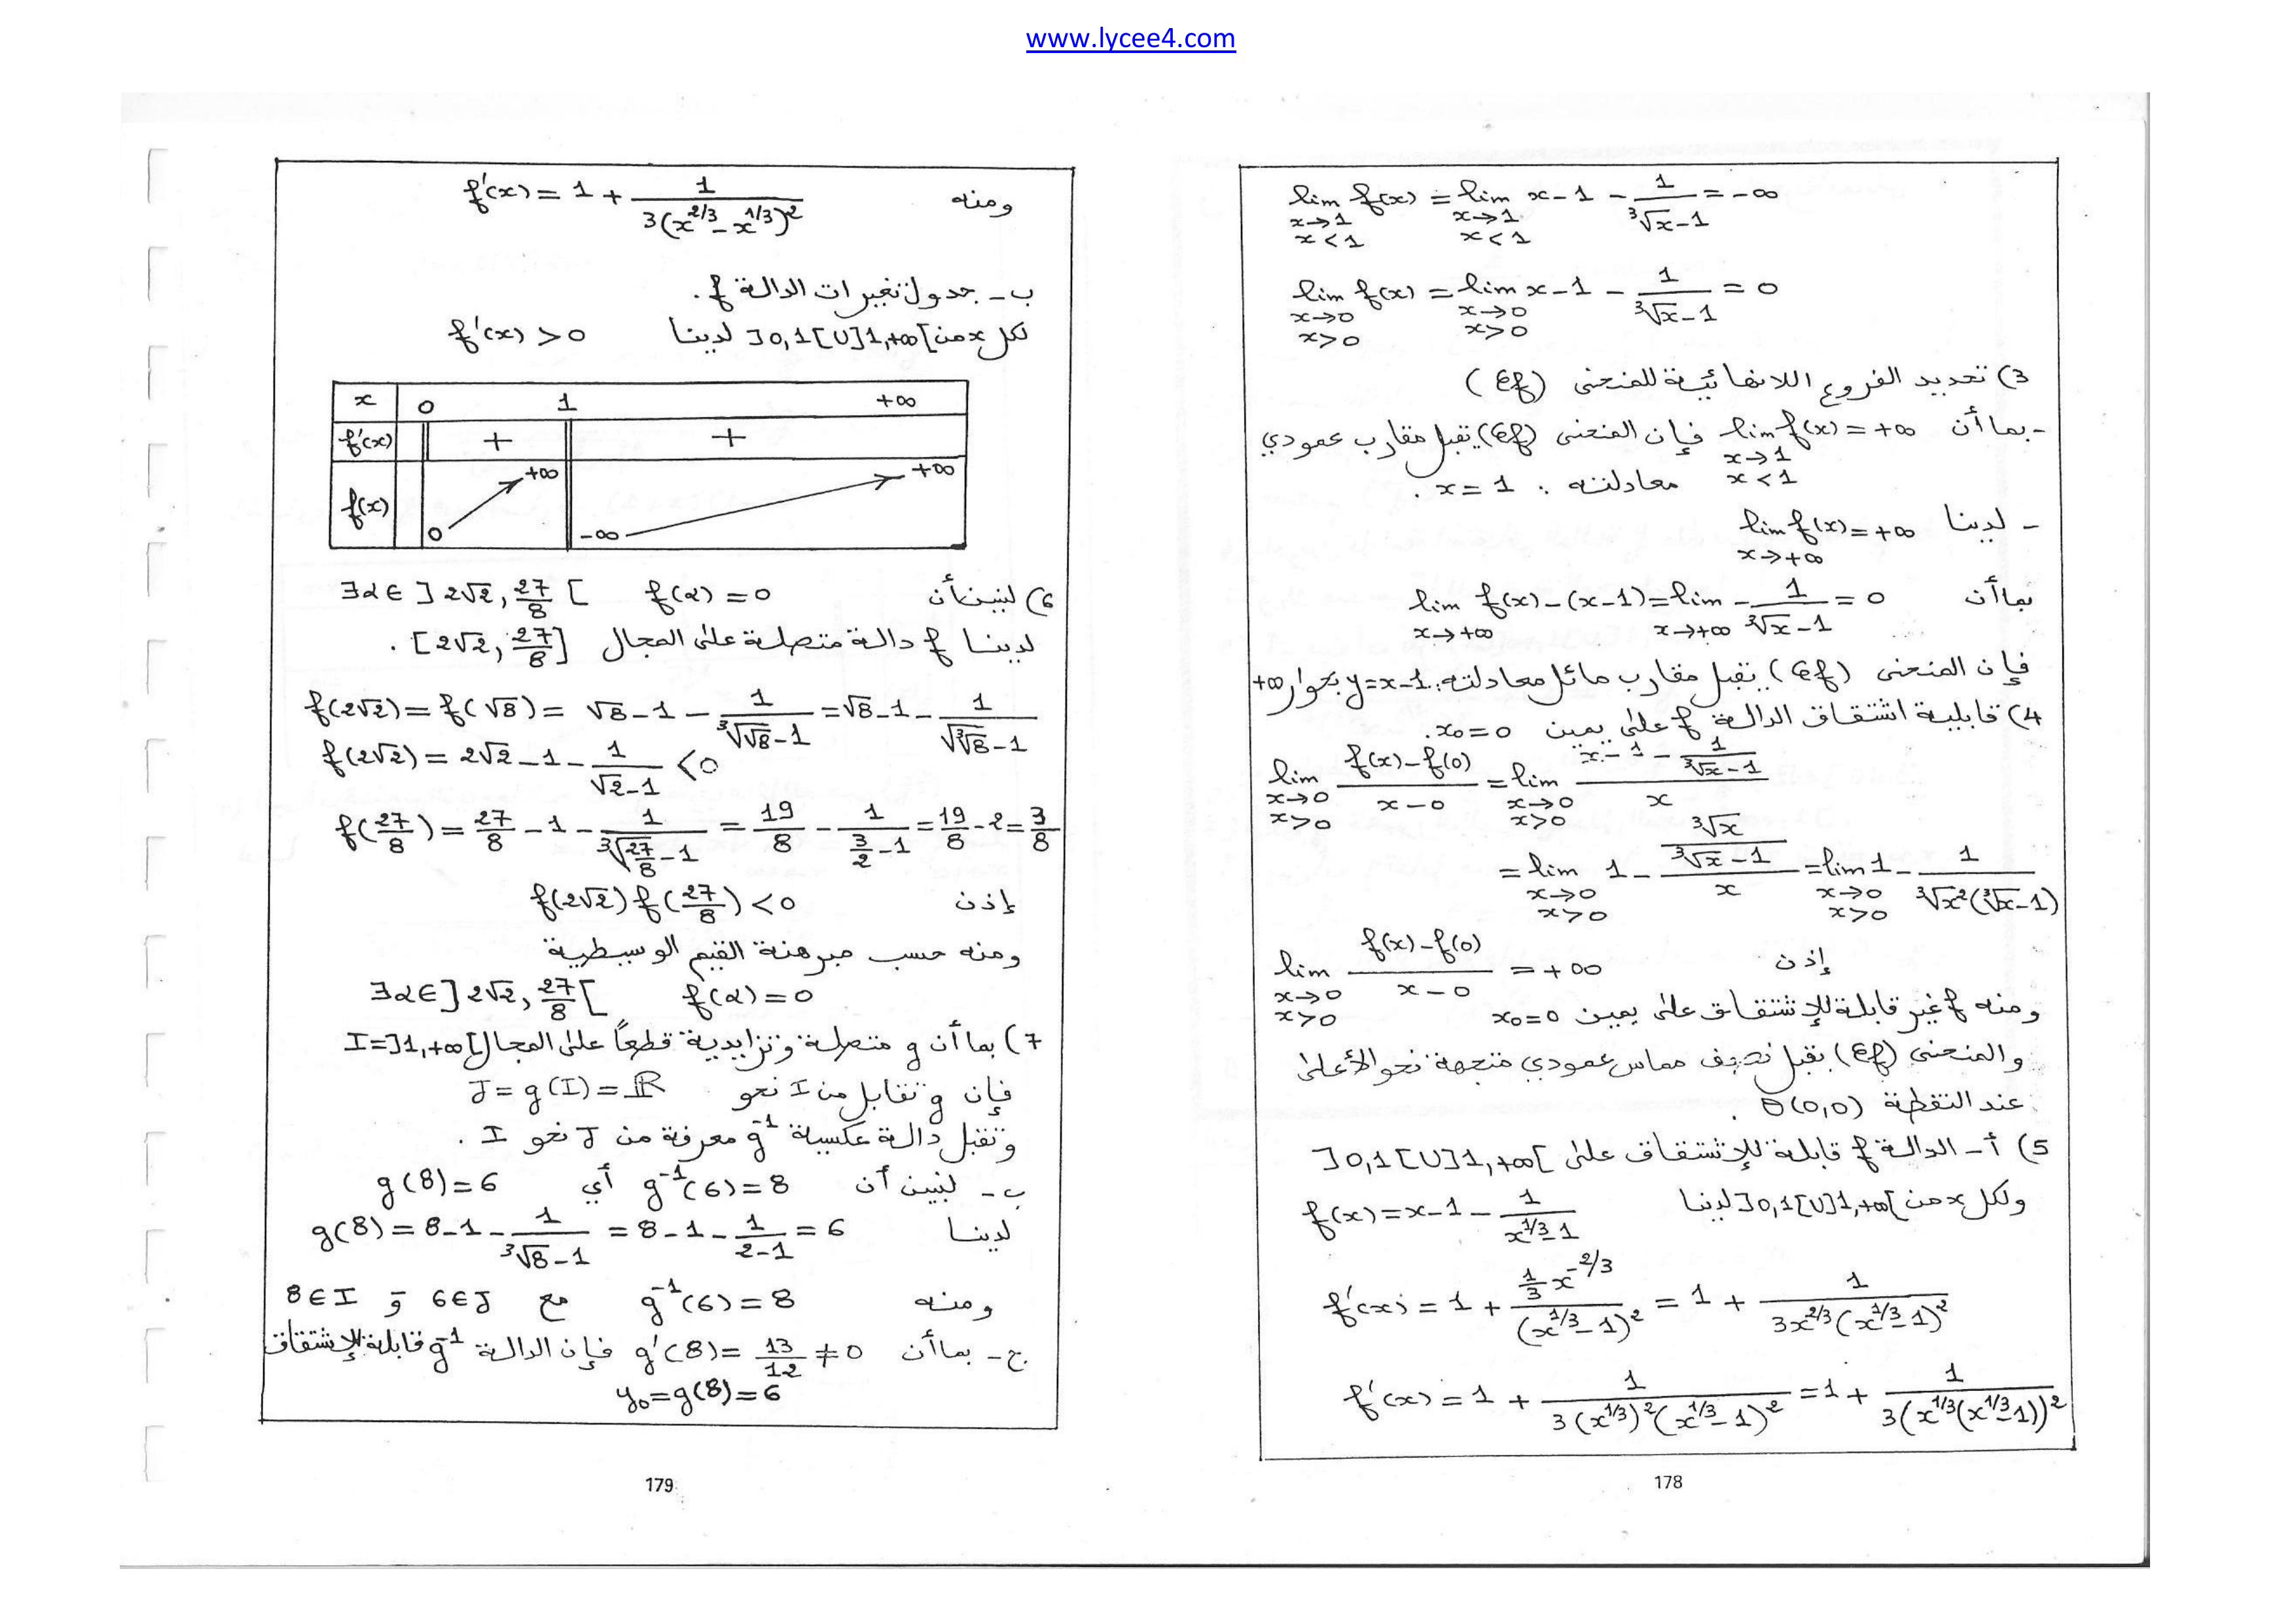 www.lycee4.com
lim_{x→1, x<1} f(x) = lim_{x→1, x<1} x-1 - 1/(∛x-1) = -∞
lim_{x→0, x>0} f(x) = lim_{x→0, x>0} x-1 - 1/(∛x-1) = 0
3) تحديد الفروع اللانهائية للمنحنى (Cf)
- بما أن lim_{x→1, x<1} f(x) = +∞ فإن المنحنى (Cf) يقبل مقارب عمودي
معادلته : x = 1 .
- لدينا lim_{x→+∞} f(x) = +∞
بما أن lim_{x→+∞} f(x)-(x-1) = lim_{x→+∞} - 1/(∛x-1) = 0
فإن المنحنى (Cf) يقبل مقارب مائل معادلته: y=x-1 بجوار +∞
4) قابلية اشتقاق الدالة f على يمين x₀=0 .
lim_{x→0, x>0} (f(x)-f(0))/(x-0) = lim_{x→0, x>0} (x-1 - 1/(∛x-1))/x
= lim_{x→0, x>0} 1 - (∛x/(∛x-1))/x = lim_{x→0, x>0} 1 - 1/(∛x²(∛x-1))
إذن lim_{x→0, x>0} (f(x)-f(0))/(x-0) = +∞
ومنه f غير قابلة للإشتقاق على يمين x₀=0
والمنحنى (Cf) يقبل نصف مماس عمودي متجهة نحو الأعلى
عند النقطة O(0,0) .
5) أ- الدالة f قابلة للإشتقاق على ]0,1[U]1,+∞[
ولكل x من ]0,1[U]1,+∞[ لدينا f(x) = x-1 - 1/(x^{1/3}-1)
f'(x) = 1 + (1/3 x^{-2/3})/(x^{1/3}-1)² = 1 + 1/(3x^{2/3}(x^{1/3}-1)²)
f'(x) = 1 + 1/(3(x^{1/3})²(x^{1/3}-1)²) = 1 + 1/(3(x^{1/3}(x^{1/3}-1))²)
178
ومنه f'(x) = 1 + 1/(3(x^{2/3}-x^{1/3})²)
ب- جدول تغيرات الدالة f .
لكل x من ]0,1[U]1,+∞[ لدينا f'(x) > 0
x 0 1 +∞
f'(x) + +
f(x) 0 +∞ -∞ +∞
6) لنبين أن ∃α∈]2√2, 27/8[ f(α) = 0
لدينا f دالة متصلة على المجال [2√2, 27/8] .
f(2√2) = f(√8) = √8-1 - 1/(∛√8-1) = √8-1 - 1/(√∛8-1)
f(2√2) = 2√2-1 - 1/(√2-1) < 0
f(27/8) = 27/8 - 1 - 1/(∛(27/8)-1) = 19/8 - 1/(3/2-1) = 19/8 - 2 = 3/8
إذن f(2√2) f(27/8) < 0
ومنه حسب مبرهنة القيم الوسيطية
∃α∈]2√2, 27/8[ f(α) = 0
7) بما أن g متصلة وتزايدية قطعاً على المجال I=]1,+∞[
فإن g تقابل من I نحو J = g(I) = ℝ
وتقبل دالة عكسية g⁻¹ معرفة من J نحو I .
ب- لنبين أن g⁻¹(6)=8 أي g(8)=6
لدينا g(8) = 8-1 - 1/(∛8-1) = 8-1 - 1/(2-1) = 6
ومنه g⁻¹(6) = 8 مع 6∈J و 8∈I
ج- بما أن g'(8) = 13/12 ≠ 0 فإن الدالة g⁻¹ قابلة للإشتقاق
y₀=g(8)=6
179